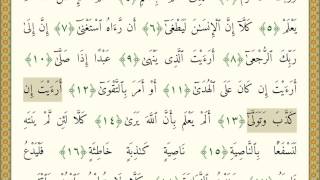 يَعْلَمْ ﴿٥﴾ كَلَّآ إِنَّ ٱلْإِنسَٰنَ لَيَطْغَىٰٓ ﴿٦﴾ أَن رَّءَاهُ ٱسْتَغْنَىٰٓ ﴿٧﴾ إِنَّ إِلَىٰ
رَبِّكَ ٱلرُّجْعَىٰٓ ﴿٨﴾ أَرَءَيْتَ ٱلَّذِى يَنْهَىٰ ﴿٩﴾ عَبْدًا إِذَا صَلَّىٰٓ ﴿١٠﴾
أَرَءَيْتَ إِن كَانَ عَلَى ٱلْهُدَىٰٓ ﴿١١﴾ أَوْ أَمَرَ بِٱلتَّقْوَىٰٓ ﴿١٢﴾ أَرَءَيْتَ إِن
كَذَّبَ وَتَوَلَّىٰٓ ﴿١٣﴾ أَلَمْ يَعْلَم بِأَنَّ ٱللَّهَ يَرَىٰ ﴿١٤﴾ كَلَّا لَئِن لَّمْ يَنتَهِ
لَنَسْفَعًۢا بِٱلنَّاصِيَةِ ﴿١٥﴾ نَاصِيَةٍ كَٰذِبَةٍ خَاطِئَةٍ ﴿١٦﴾ فَلْيَدْعُ